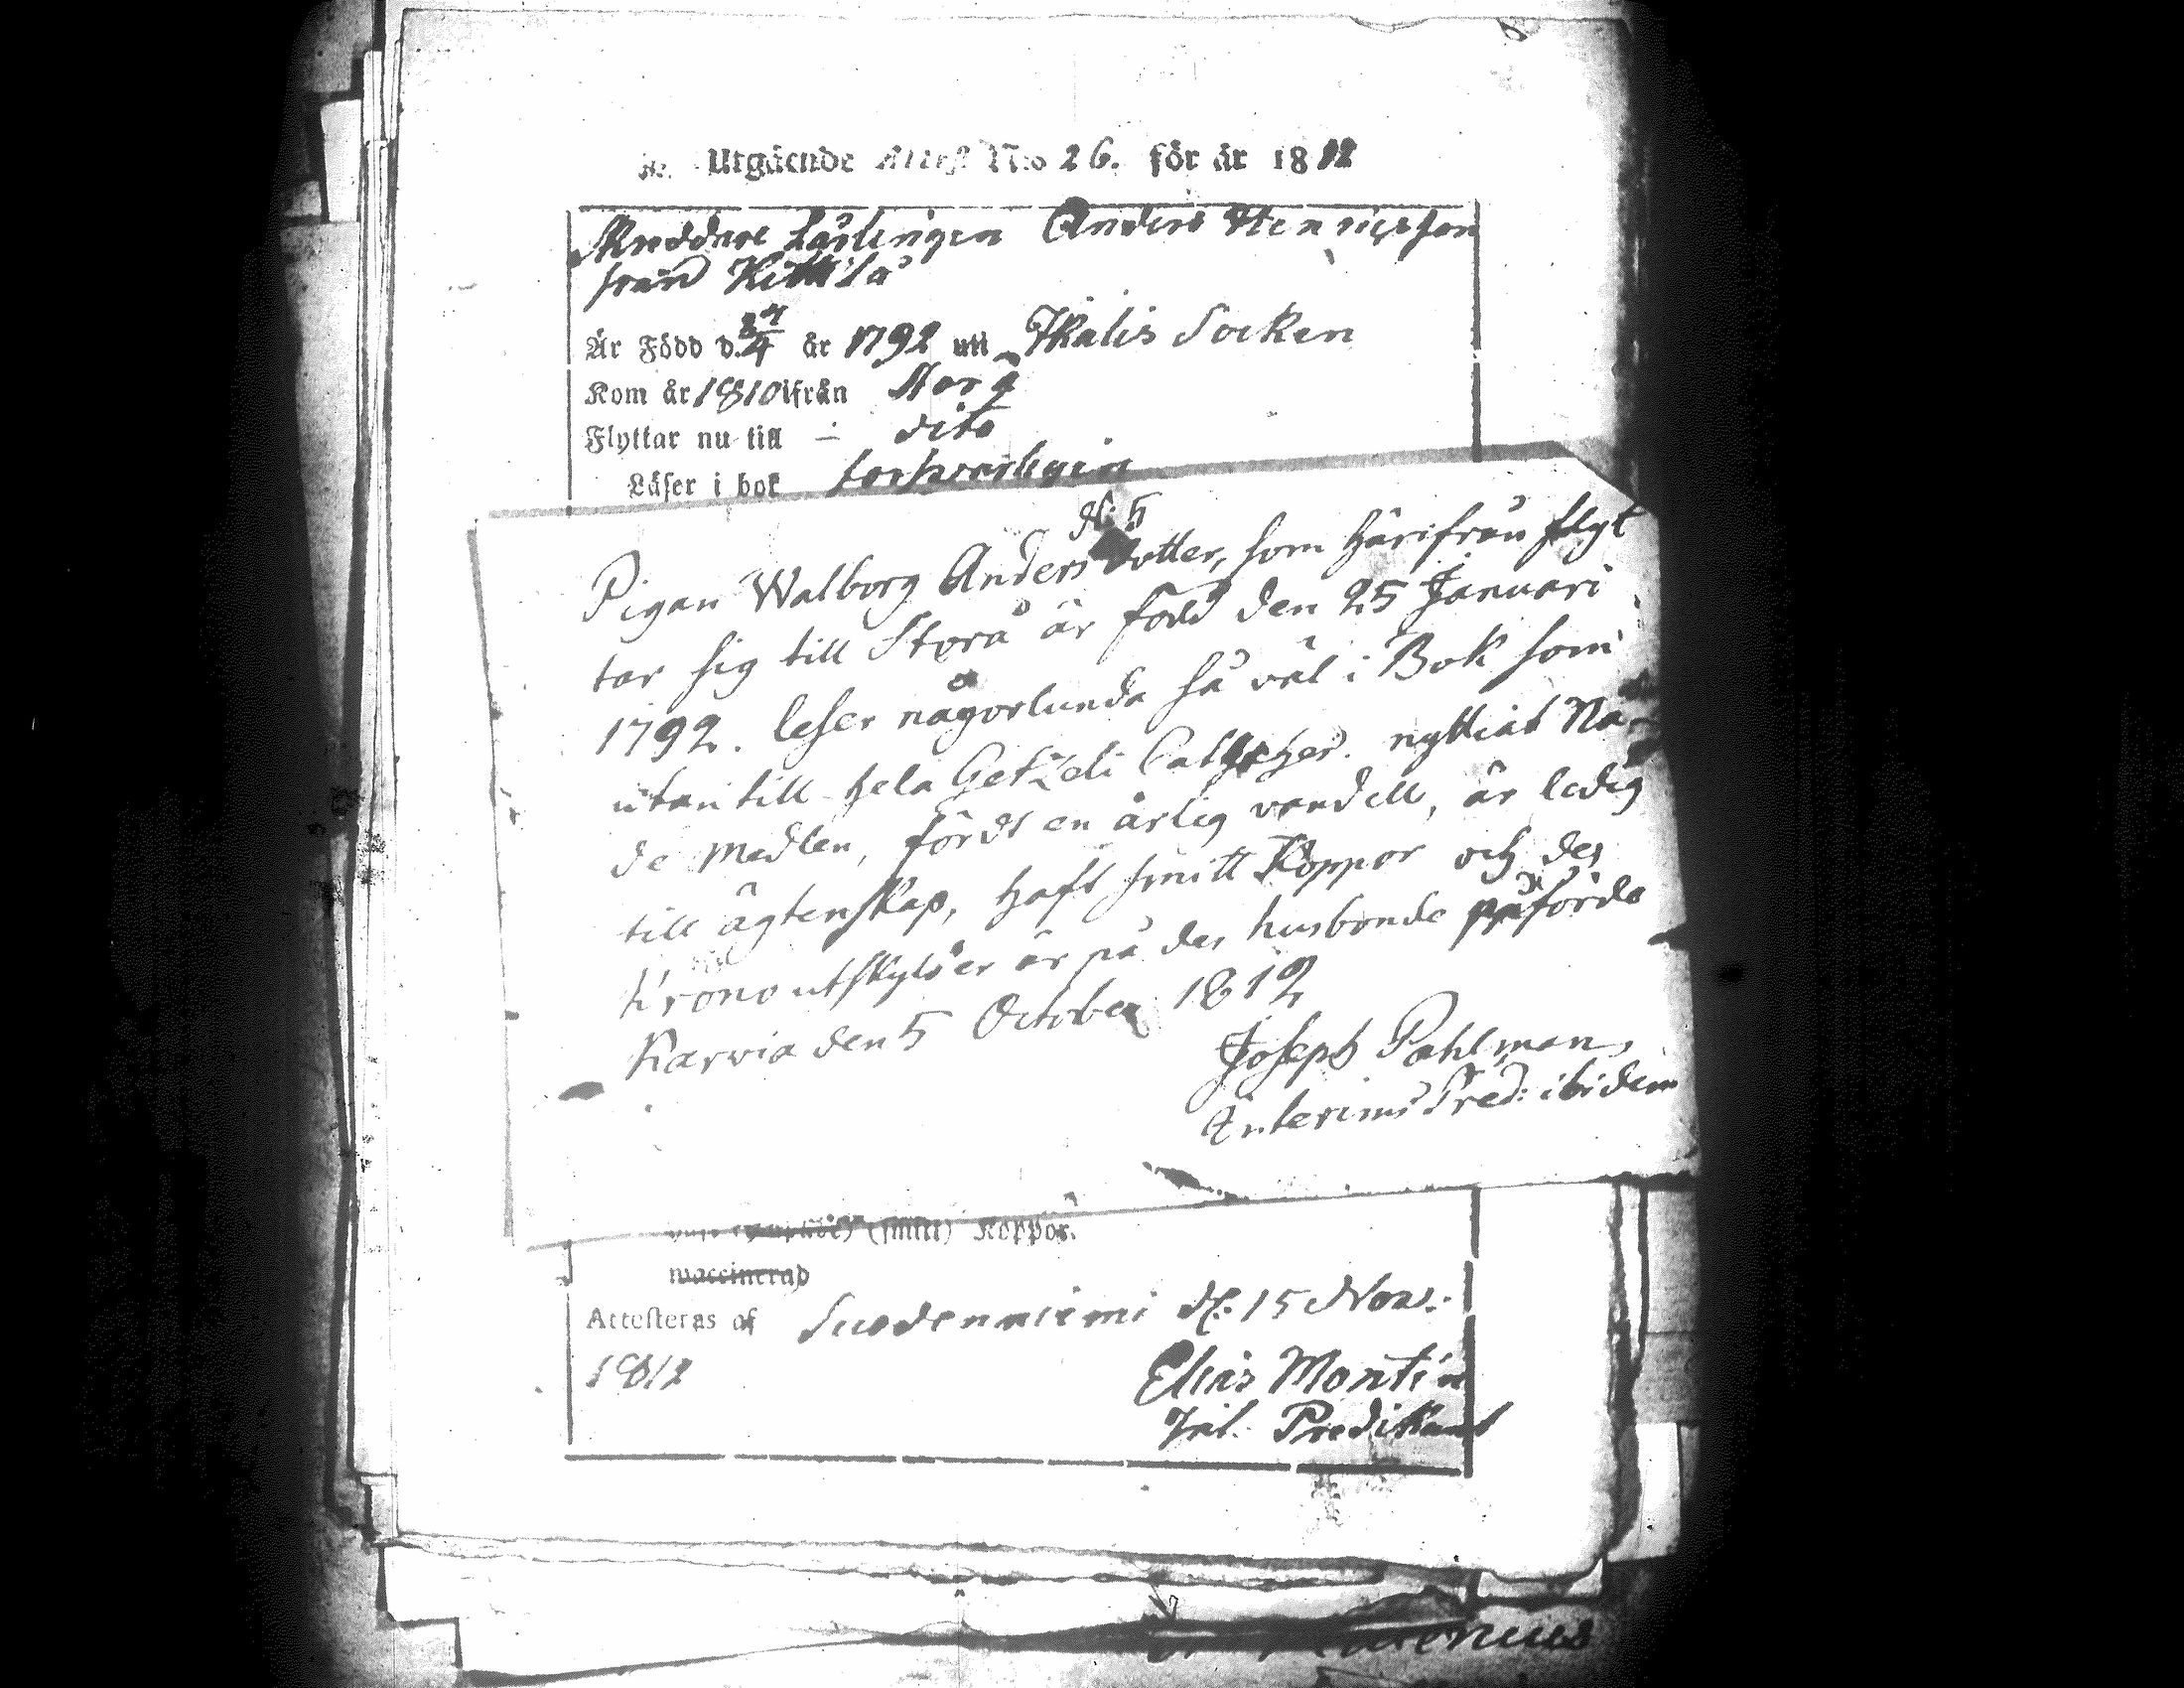 Utgående Attest N:o 26. för år 1812
Skreddare Lärlingen Anders Henricsson
från Kittilä
Är Född d. 27/4 år 1792 uti Ikalis Socken
Kom år 1810 ifrån Storå
Flyttar nu till — dito
Läser i bok försvarligen
N: 5
Pigan Walborg Andersdotter, som härifrån flyt
tar sig till Storå är född den 25 Januari
1792. leser någorlunda så väl i Bok som
utantill hela Getzeli Catheches. nyttiat Nå-
de Medlen, fördt en ärlig vandell, är ledig
till ägtenskap, haft smitt Koppor och des
Krono utskylder är på des husbonde påförde
Karvia den 5 October 1812
Joseph Pahlman
Interims Pred: ibidem
(smitt) Koppor.
waccinerad
Attesteras af Suodenniemi d: 15 Nov:
1812
Elias Montin
Predikant